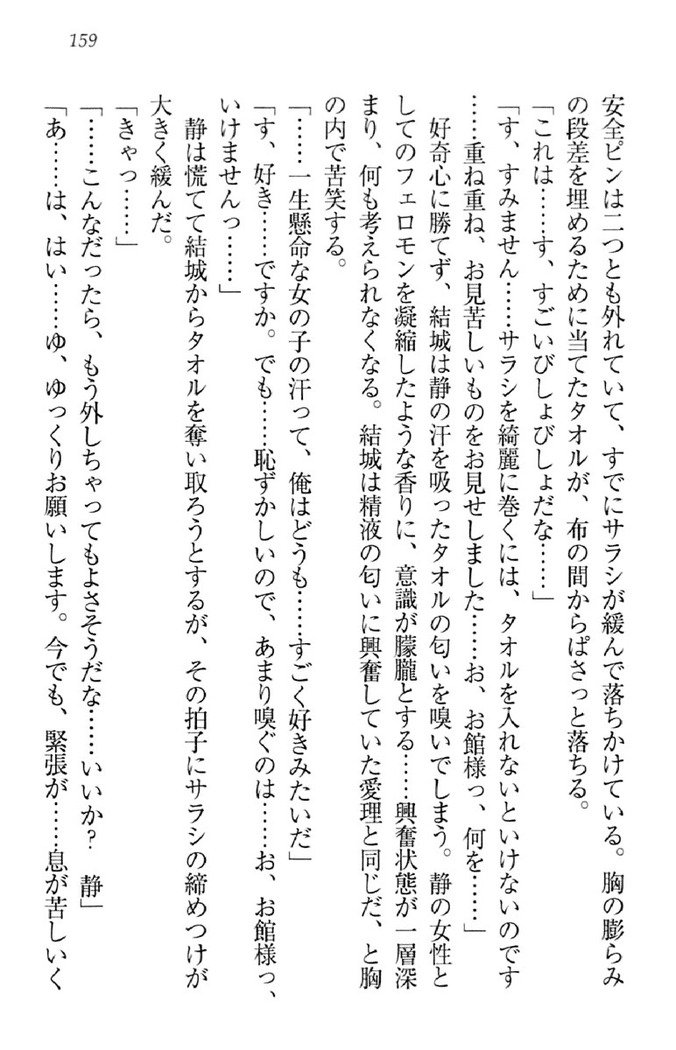 159
安全ピンは二つとも外れていて、すでにサラシが緩んで落ちかけている。胸の膨らみ
の段差を埋めるために当てたタオルが、布の間からぱさっと落ちる。
「これは……す、すごいびしょびしょだな……」
「す、すみません……サラシを綺麗に巻くには、タオルを入れないといけないのです
……重ね重ね、お見苦しいものをお見せしました……お、お館様っ、何を……」
好奇心に勝てず、結城は静の汗を吸ったタオルの匂いを嗅いでしまう。静の女性と
してのフェロモンを凝縮したような香りに、意識が朦朧とする……興奮状態が一層深
まり、何も考えられなくなる。結城は精液の匂いに興奮していた愛理と同じだ、と胸
の内で苦笑する。
「……一生懸命な女の子の汗って、俺はどうも……すごく好きみたいだ」
「す、好き……ですか。でも……恥ずかしいので、あまり嗅ぐのは……お、お館様っ、
いけませんっ……」
静は慌てて結城からタオルを奪い取ろうとするが、その拍子にサラシの締めつけが
大きく緩んだ。
「きゃっ……」
「……こんなだったら、もう外しちゃってもよさそうだな……いいか？　静」
「あ……は、はい……ゆ、ゆっくりお願いします。今でも、緊張が……息が苦しいく